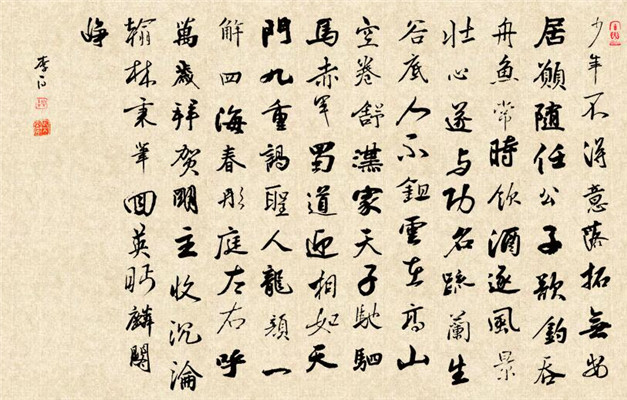 少年不得意落拓無安
居願隨任公子欲釣吞
舟魚常時飲酒逐風景
壯心遂与功名疏蘭生
谷底人不鉏雲在高山
空卷舒漢家天子馳駟
馬赤車蜀道迎相如天
門九重謁聖人龍顏一
解四海春彤庭左右呼
萬歲拜賀明主收沉淪
翰林秉筆回英眄麟閣
崢
李白